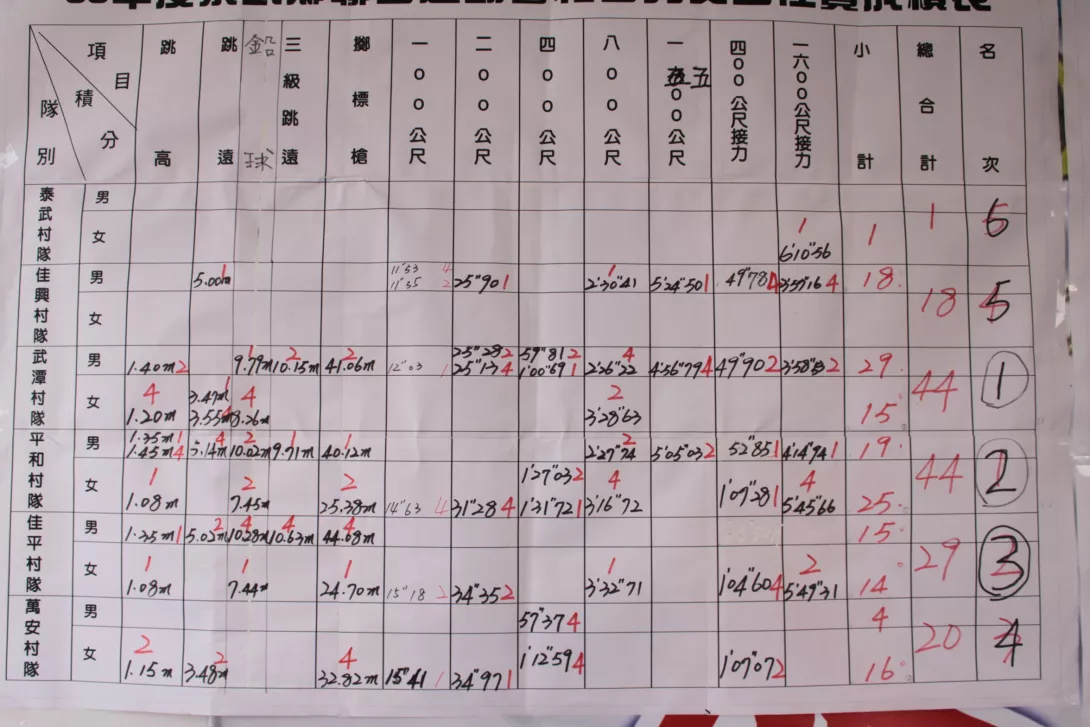 項目 積分 隊別 跳高 跳遠 鉛球 三級跳遠 擲標槍 一00公尺 二00公尺 四00公尺 八00公尺 一五00公尺 四00公尺接力 一六00公尺接力 小計 總合計 名次
泰武村隊 男
女 1 6'10"56 1 1
佳興村隊 男 5.00m 1 11"53 4 11"35 2 25"90 1 2'30"41 1 5'24"50 1 49"78 4 3'57"16 4 18 18 5
女
武潭村隊 男 1.40m 2 9.79m 1 10.15m 2 41.06m 2 12"03 1 25"28 2 25"13 4 57"81 2 1'00"69 1 2'26"22 4 4'56"79 4 49"90 2 2 29 44 1
女 1.20m 4 3.47m 1 3.55m 4 8.26m 4 3'28"63 2 15
平和村隊 男 1.35m 1 1.45m 4 5.14m 4 10.02m 2 9.71m 1 40.12m 1 2'27"74 2 5'05"03 2 52"85 1 4'14"94 1 19 44 2
女 1.08m 1 7.45m 2 25.38m 2 14"63 4 31"28 4 1'27"03 2 1'31"72 1 3'16"72 4 1'07"28 1 5'45"66 4 25
佳平村隊 男 1.35m 1 5.02m 2 10.28m 4 10.63m 4 44.08m 4 15 29 3
女 1.08m 1 7.44m 1 24.70m 1 15"18 2 34"35 2 3'32"71 1 1'04"60 4 5'49"31 2 14
萬安村隊 男 57"37 4 4 20 4
女 1.15m 2 3.48m 2 32.82m 4 15"41 1 34"97 1 1'12"59 4 1'07"07 2 16